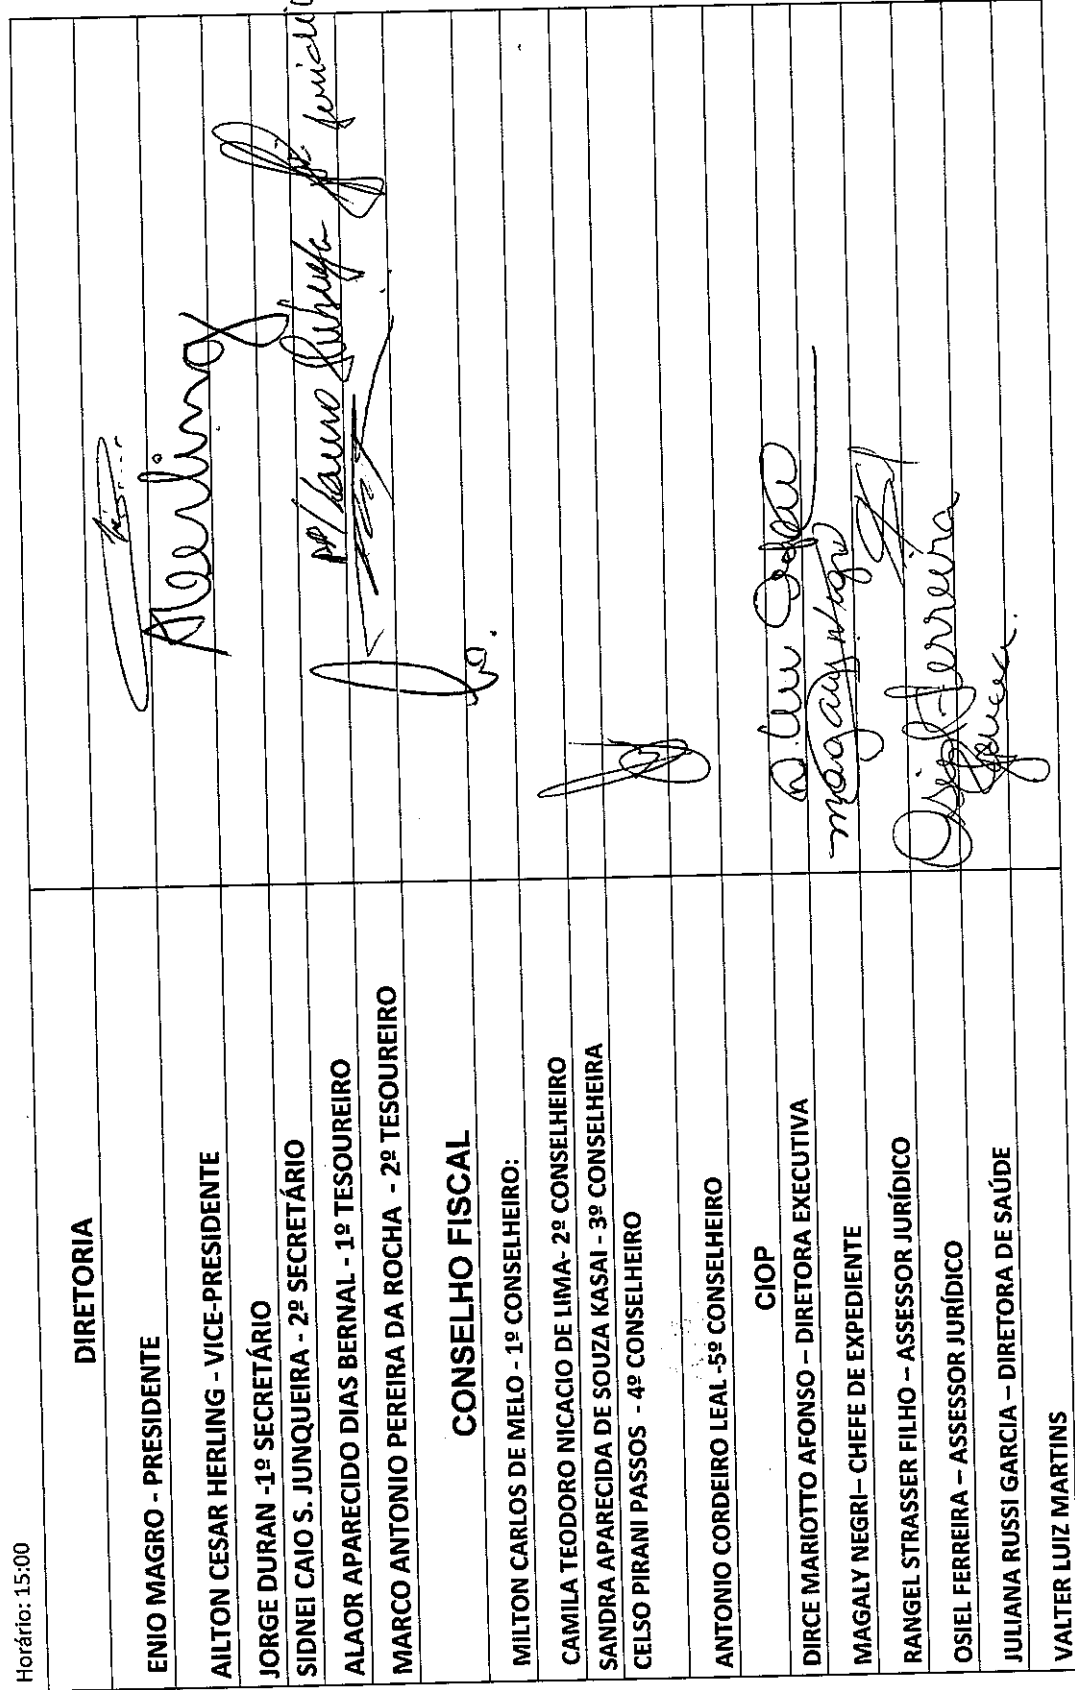 Horário: 15:00
DIRETORIA
ENIO MAGRO - PRESIDENTE
AILTON CESAR HERLING - VICE-PRESIDENTE
Herling
JORGE DURAN -1º SECRETÁRIO
SIDNEI CAIO S. JUNQUEIRA - 2º SECRETÁRIO
ALAOR APARECIDO DIAS BERNAL - 1º TESOUREIRO
MARCO ANTONIO PEREIRA DA ROCHA - 2º TESOUREIRO
CONSELHO FISCAL
MILTON CARLOS DE MELO - 1º CONSELHEIRO:
CAMILA TEODORO NICACIO DE LIMA- 2º CONSELHEIRO
SANDRA APARECIDA DE SOUZA KASAI - 3º CONSELHEIRA
CELSO PIRANI PASSOS - 4º CONSELHEIRO
ANTONIO CORDEIRO LEAL -5º CONSELHEIRO
CIOP
DIRCE MARIOTTO AFONSO – DIRETORA EXECUTIVA
MAGALY NEGRI– CHEFE DE EXPEDIENTE
magaly
RANGEL STRASSER FILHO – ASSESSOR JURÍDICO
OSIEL FERREIRA – ASSESSOR JURÍDICO
Osiel Ferreira
JULIANA RUSSI GARCIA – DIRETORA DE SAÚDE
VALTER LUIZ MARTINS